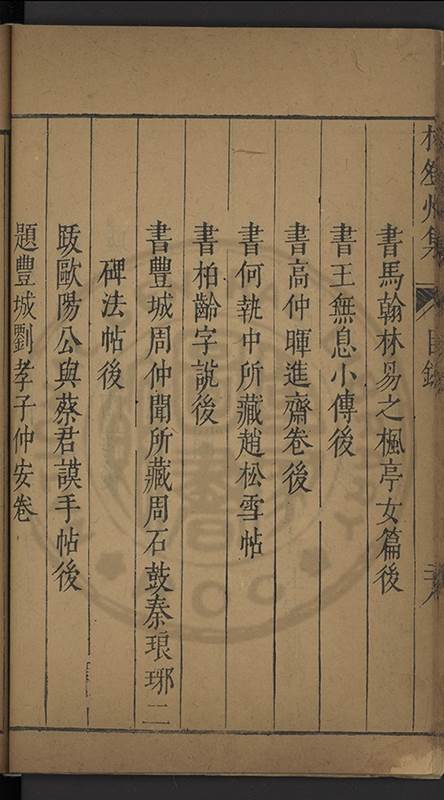 集 目錄
書馬翰林易之楓亭女篇後
書王無息小傳後
書高仲暉進齋卷後
書何執中所藏趙松雪帖
書柏齡字說後
書豐城周仲聞所藏周石鼓秦琅琊二
碑法帖後
跋歐陽公與蔡君謨手帖後
題豐城劉孝子仲安卷